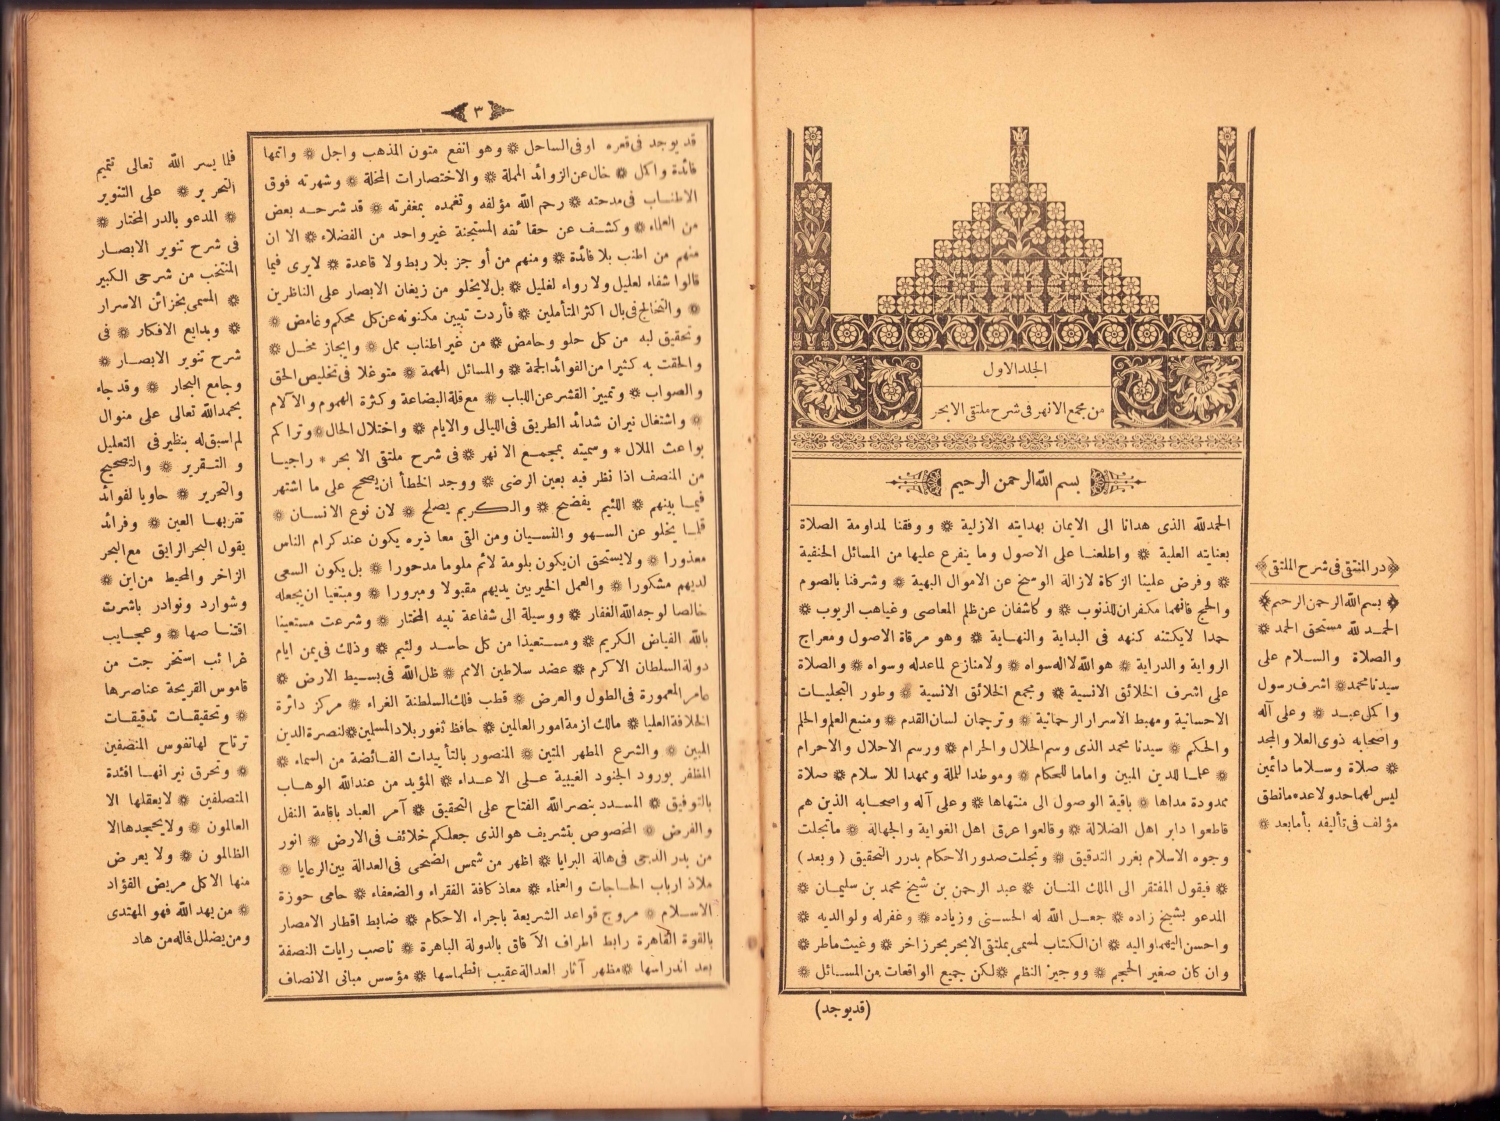 الجلد الاول
من مجمع الانهر فى شرح ملتقى الابحر
بسم الله الرحمن الرحيم
الحمدلله الذى هدانا الى الايمان بهدايته الازلية ❋ ووفقنا لمداومة الصلاة
بعنايته العلية ❋ واطلعنا على الاصول وما يتفرع عليها من المسائل الحنفية
❋ وفرض علينا الزكاة لازالة الوسخ عن الاموال البهية ❋ وشرفنا بالصوم
والحج فانهما مكفران للذنوب ❋ وكاشفان عن ظلم المعاصى وغياهب الريوب ❋
حمدا لايكتنه كنهه فى البداية والنهاية ❋ وهو مرقاة الاصول ومعراج
الرواية والدراية ❋ هو الله لا اله سواه ❋ ولا منازع لما عدله وسواه ❋ والصلاة
على اشرف الخلائق الانسية ❋ ومجمع الحلائق الانسية ❋ وطور التجليات
الاحسانية ومهبط الاسرار الرحمانية ❋ وترجمان لسان القدم ❋ ومنبع العلم والحلم
والحكم ❋ سيدنا محمد الذى وسم الحلال والحرام ❋ ورسم الاحلال والاحرام
❋ علما للدين المبين واماما للحكام ❋ وموطدا للملة وممهدا للاسلام ❋ صلاة
ممدودة مداها ❋ باقية الوصول الى منتهاها ❋ وعلى آله واصحابه الذين هم
قاطعوا دابر اهل الضلالة ❋ وقالعوا عرق اهل الغواية والجهالة ❋ ماتجلت
وجوه الاسلام بغرر التدقيق ❋ وتجلت صدور الاحكام بدرر التحقيق ( وبعد )
❋ فيقول المفتقر الى الملك المنان ❋ عبد الرحمن بن شيخ محمد بن سليمان ❋
المدعو بشيخ زاده ❋ جعل الله له الحسنى وزياده ❋ وغفر له ولوالديه ❋
واحسن اليهما واليه ❋ ان الكتاب لمسمى بملتقى الابحر بحر زاخر ❋ وغيث ماطر ❋
وان كان صغير الحجم ❋ ووجيز النظم ❋ لكن جميع الواقعات من المسائل ❋
(قد يوجد)
﴿ در المنتقى فى شرح الملتقى ﴾
﴿ بسم الله الرحمن الرحيم ﴾
الحمد لله مستحق الحمد ❋
والصلاة والسلام على
سيدنا محمد ❋ اشرف رسول
واكمل عبد ❋ وعلى آله
واصحابه ذوى العلا والمجد
❋ صلاة وسلاما دائمين
ليس لهما حد ولا عد ما نطق
مؤلف فى تأليفه بأما بعد ❋
٣
قد يوجد فى قعره اوفى الساحل ❋ وهو انفع متون المذهب واجل ❋ واتمها
فائدة واكمل ❋ خال عن الزوائد المملة ❋ والاختصارات المخلة ❋ وشهرته فوق
الاطناب فى مدحته ❋ رحم الله مؤلفه وتغمده بمغفرته ❋ قد شرحه بعض
من العلماء ❋ وكشف عن حقائقه المستجنة غير واحد من الفضلاء ❋ الا ان
منهم من اطنب بلا فائدة ❋ ومنهم من أوجز بلا ربط ولا قاعدة ❋ لايرى فيما
قالوا شفاء لعليل ولا رواء لغليل ❋ بل لايخلو من زيغان الابصار على الناظرين
❋ والتخالج فى بال اكثر المتأملين ❋ فأردت تبيين مكنونه عن كل محكم وغامض ❋
وتحقيق لبه من كل حلو وحامض ❋ من غير اطناب ممل ❋ وايجاز مخل ❋
والحقت به كثيرا من الفوائد الجمة ❋ والمسائل المهمة ❋ متوغلا فى تخليص الحق
والصواب ❋ وتمييز القشر عن اللباب ❋ مع قلة البضاعة وكثرة الهموم والآلام
❋ واشتغال نيران شدائد الطريق فى الليالى والايام ❋ واختلال الحال ❋ وتراكم
بواعث الملال ❋ وسميته بمجمع الانهر ❋ فى شرح ملتقى الابحر ❋ راجيا
من المنصف اذا نظر فيه بعين الرضى ❋ ووجد الخطأ ان يصحح على ما اشتهر
فيما بينهم ❋ اللئيم يفضح ❋ والكريم يصلح ❋ لان نوع الانسان ❋
قلما يخلو عن السهو والنسيان ومن التى معاذيره يكون عند كرام الناس
معذورا ❋ ولا يستحق ان يكون بلومة لائم ملوما مدحورا ❋ بل يكون السعى
لديهم مشكورا ❋ والعمل الخير بين يديهم مقبولا ومبرورا ❋ ومبتغيا ان يجعله
خالصا لوجه الله الغفار ❋ ووسيلة الى شفاعة نبيه المختار ❋ وشرعت مستعينا
بالله الفياض الكريم ❋ ومستعيذا من كل حاسد ولئيم ❋ وذلك فى يمن ايام
دولة السلطان الاكرم ❋ عضد سلاطين الامم ❋ ظل الله فى بسيط الارض ❋
عامر المعمورة فى الطول والعرض ❋ قطب فلك السلطنة الغراء ❋ مركز دائرة
الخلافة العليا ❋ مالك ازمة امور العالمين ❋ حافظ ثغور بلاد المسلمين ❋ لنصرة الدين
المبين ❋ والشرع المطهر المتين ❋ المنصور بالتأييدات الفائضة من السماء ❋
المظفر بورود الجنود الغيبية على الاعداء ❋ المؤيد من عند الله الوهاب
بالتوفيق ❋ المسدد بنصر الله الفتاح على التحقيق ❋ آمر العباد باقامة النفل
والفرض ❋ المخصوص بتشريف هو الذى جعلكم خلائف فى الارض ❋ انور
من بدر الدجى فى هالة البرايا ❋ اظهر من شمس الضحى فى العدالة بين الرعايا ❋
ملاذ ارباب الحاجات والعناء ❋ معاذ كافة الفقراء والضعفاء ❋ حامى حوزة
الاسلام ❋ مروج قواعد الشريعة باجراء الاحكام ❋ ضابط اقطار الامصار
بالقوة القاهرة رابط اطراف الآفاق بالدولة الباهرة ❋ ناصب رايات النصفة
بعد اندراسها ❋ مظهر آثار العدالة عقيب انطماسها ❋ مؤسس مبانى الانصاف
فلما يسر الله تعالى تتميم
التحرير ❋ على التنوير
❋ المدعو بالدر المختار ❋
فى شرح تنوير الابصار
المنتخب من شرحى الكبير
❋ المسمى بخزائن الاسرار
❋ وبدايع الافكار ❋ فى
شرح تنوير الابصار ❋
وجامع البحار ❋ وقد جاء
بحمد الله تعالى على منوال
لم اسبق له بنظير فى التعليل
والتقرير ❋ والتصحيح
والتحرير ❋ حاويا لفوائد
تقر بها العين ❋ وفرائد
يقول البحر الرايق مع البحر
الزاخر والمحيط من اين ❋
وشوارد ونوادر باشرت
اقتناصها ❋ وعجايب
غرائب استخرجت من
قاموس القريحة عناصرها
❋ وتحقيقات تدقيقات
ترتاح لها نفوس المنصفين
❋ وتحرق نيرانها افئدة
المتصلفين ❋ لايعقلها الا
العالمون ❋ ولا يجحدها الا
الظالمون ❋ ولا يعرض
منها الا كل مريض الفؤاد
❋ من يهد الله فهو المهتدى
ومن يضلل فاله من هاد